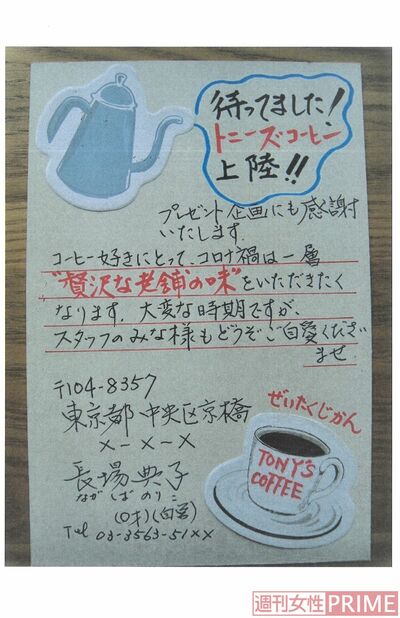 待ってました!
トニーズコーヒー
上陸!!
プレゼント企画にも感謝
いたします。
コーヒー好きにとって、コロナ禍は一層
"贅沢な老舗の味"をいただきたく
なります。大変な時期ですが、
スタッフのみな様もどうぞご自愛くださ
ませ
〒104-8357
東京都中央区京橋
×-×-×
ぜいたくじかん
TONY'S
COFFEE
長場典子
ながばのりこ
(自営)
Tel 03-3563-51××
週刊女性PRIME